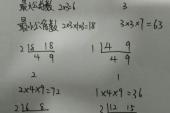 最大公因数 2×3=6 3
最小公倍数 2×3×1×3=18 3×3×7=63
2 8 18 1 4 9
4 9 4 9
2 1
2×4×9=72 1×4×9=36
2 6 8 2 12 15